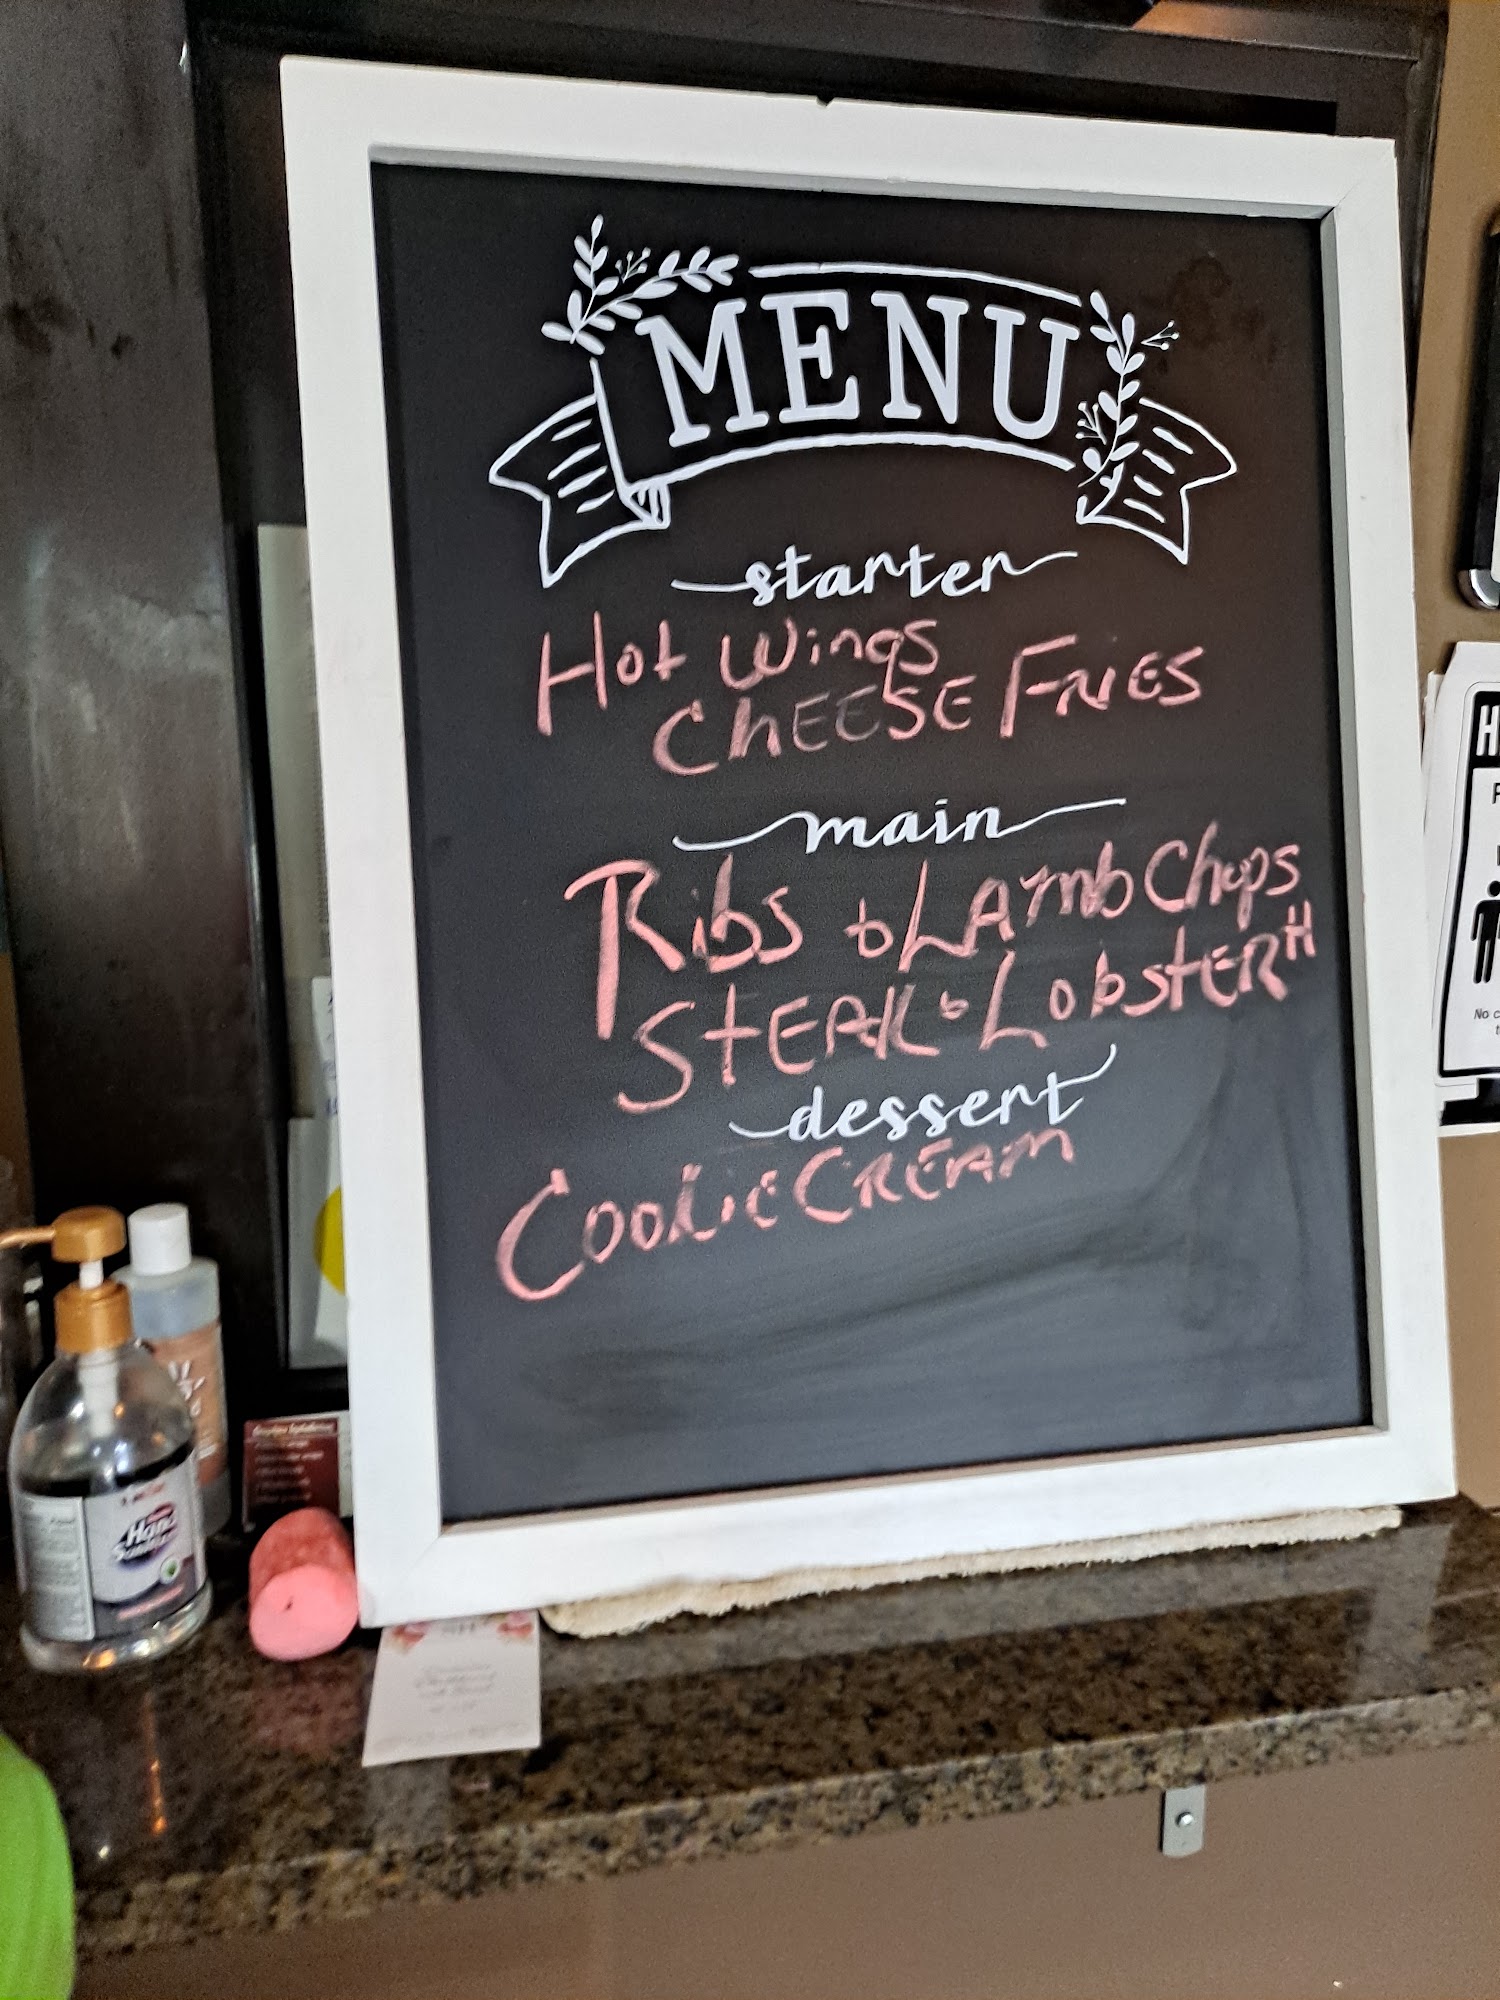 MENU
starter
Hot Wings
CHEESE FRIES
main
Ribs & LAmb Chops
STEAK & LobsTER H
dessert
Cookie CREAM
Hand
H
No c